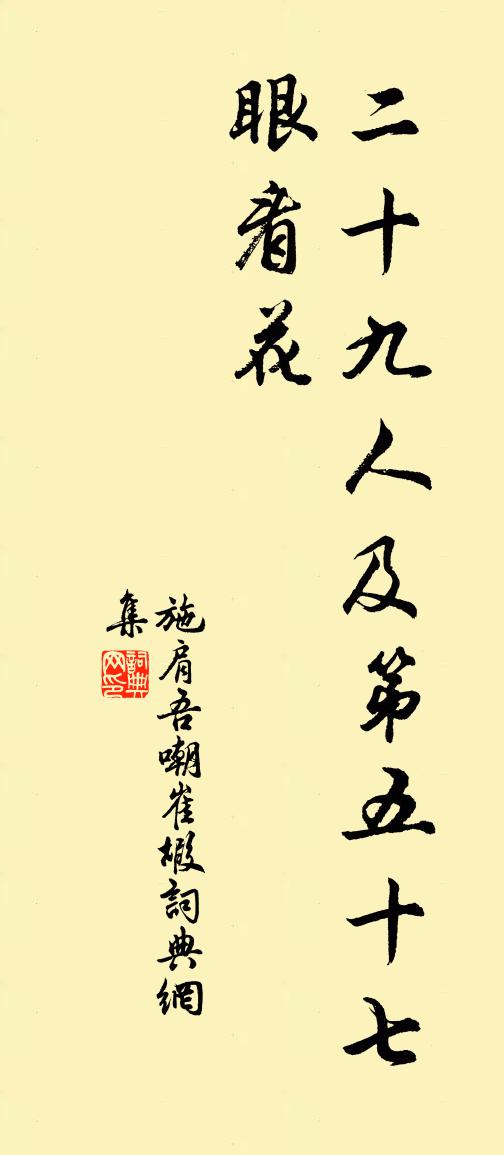 二十九人及第五十七
眼看花
施肩吾嘲崔嘏詞典網
集
詞典
网印